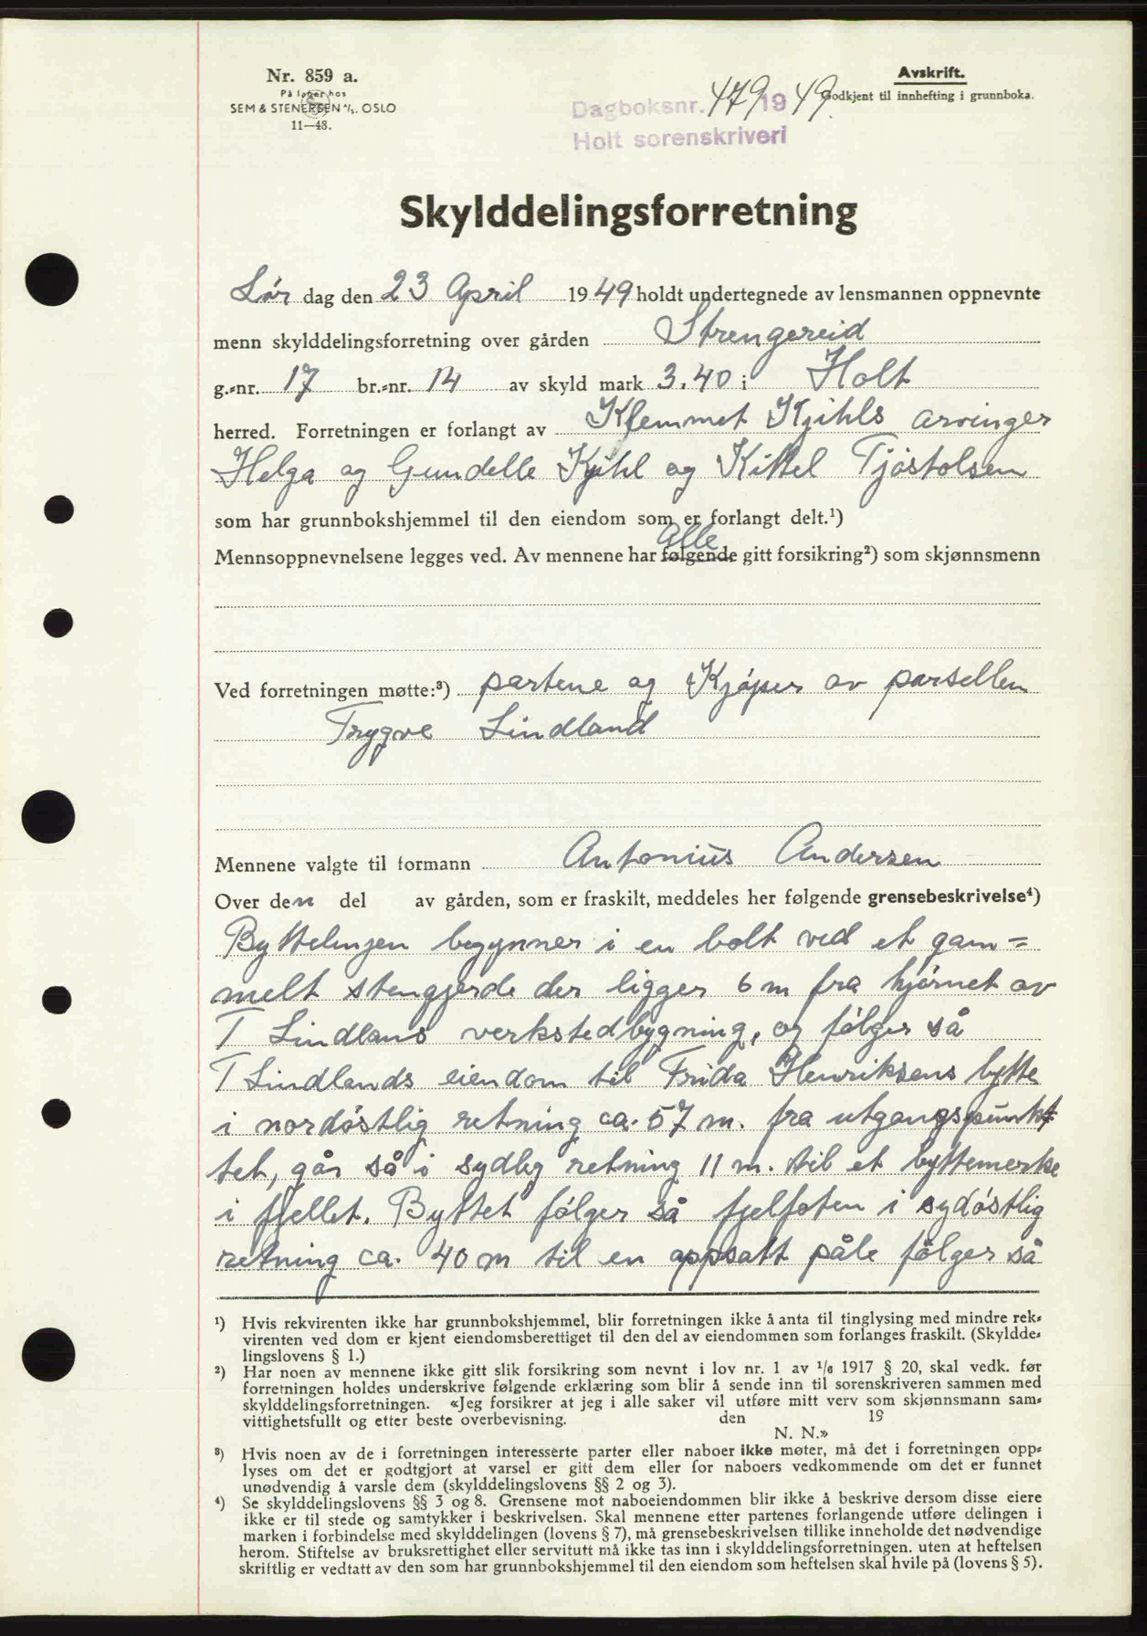 Nr. 859 a.
På lager hos
SEM & STENERSEN A/S. OSLO
11—48.
Avskrift.
Godkjent til innhefting i grunnboka.
Dagboksnr. 479 1949.
Holt sorenskriveri
Skylddelingsforretning
Lør dag den 23 April 1949 holdt undertegnede av lensmannen oppnevnte
menn skylddelingsforretning over gården Strengereid
g.-nr. 17 br.-nr. 14 av skyld mark 3.40 i Holt
herred. Forretningen er forlangt av Klemmet Kjihls arvinger
Helga og Gundelle Kjihl og Kittel Tjøstolsen
som har grunnbokshjemmel til den eiendom som er forlangt delt.¹)
Alle
Mennsoppnevnelsene legges ved. Av mennene har følgende gitt forsikring²) som skjønnsmenn
Ved forretningen møtte:³) partene og Kjøper av parsellen
Trygve Lindland
Mennene valgte til formann Antonius Andersen
Over den del av gården, som er fraskilt, meddeles her følgende grensebeskrivelse⁴)
Byttelinjen begynner i en bolt ved et gam=
melt stengjerde der ligger 6 m fra hjørnet av
T Lindlans verkstedbygning, og følger så
T Lindlands eiendom til Frida Henriksens bytte
i nordøstlig retning ca. 57 m. fra utgangspunk
tet, går så i sydlig retning 11 m. til et byttemerke
i fjellet. Byttet følger så fjelfoten i sydøstlig
retning ca. 40 m til en oppsatt påle følger så
¹) Hvis rekvirenten ikke har grunnbokshjemmel, blir forretningen ikke å anta til tinglysing med mindre rek-
virenten ved dom er kjent eiendomsberettiget til den del av eiendommen som forlanges fraskilt. (Skyldde-
lingslovens § 1.)
²) Har noen av mennene ikke gitt slik forsikring som nevnt i lov nr. 1 av 1/6 1917 § 20, skal vedk. før
forretningen holdes underskrive følgende erklæring som blir å sende inn til sorenskriveren sammen med
skylddelingsforretningen. «Jeg forsikrer at jeg i alle saker vil utføre mitt verv som skjønnsmann sam-
vittighetsfullt og etter beste overbevisning. den 19
N. N.»
³) Hvis noen av de i forretningen interesserte parter eller naboer ikke møter, må det i forretningen opp-
lyses om det er godtgjort at varsel er gitt dem eller for naboers vedkommende om det er funnet
unødvendig å varsle dem (skylddelingslovens §§ 2 og 3).
⁴) Se skylddelingslovens §§ 3 og 8. Grensene mot naboeiendommen blir ikke å beskrive dersom disse eiere
ikke er til stede og samtykker i beskrivelsen. Skal mennene etter partenes forlangende utføre delingen i
marken i forbindelse med skylddelingen (lovens § 7), må grensebeskrivelsen tillike inneholde det nødvendige
herom. Stiftelse av bruksrettighet eller servitutt må ikke tas inn i skylddelingsforretningen. uten at heftelsen
skriftlig er vedtatt av den som har grunnbokshjemmel til den eiendom som heftelsen skal hvile på (lovens § 5).